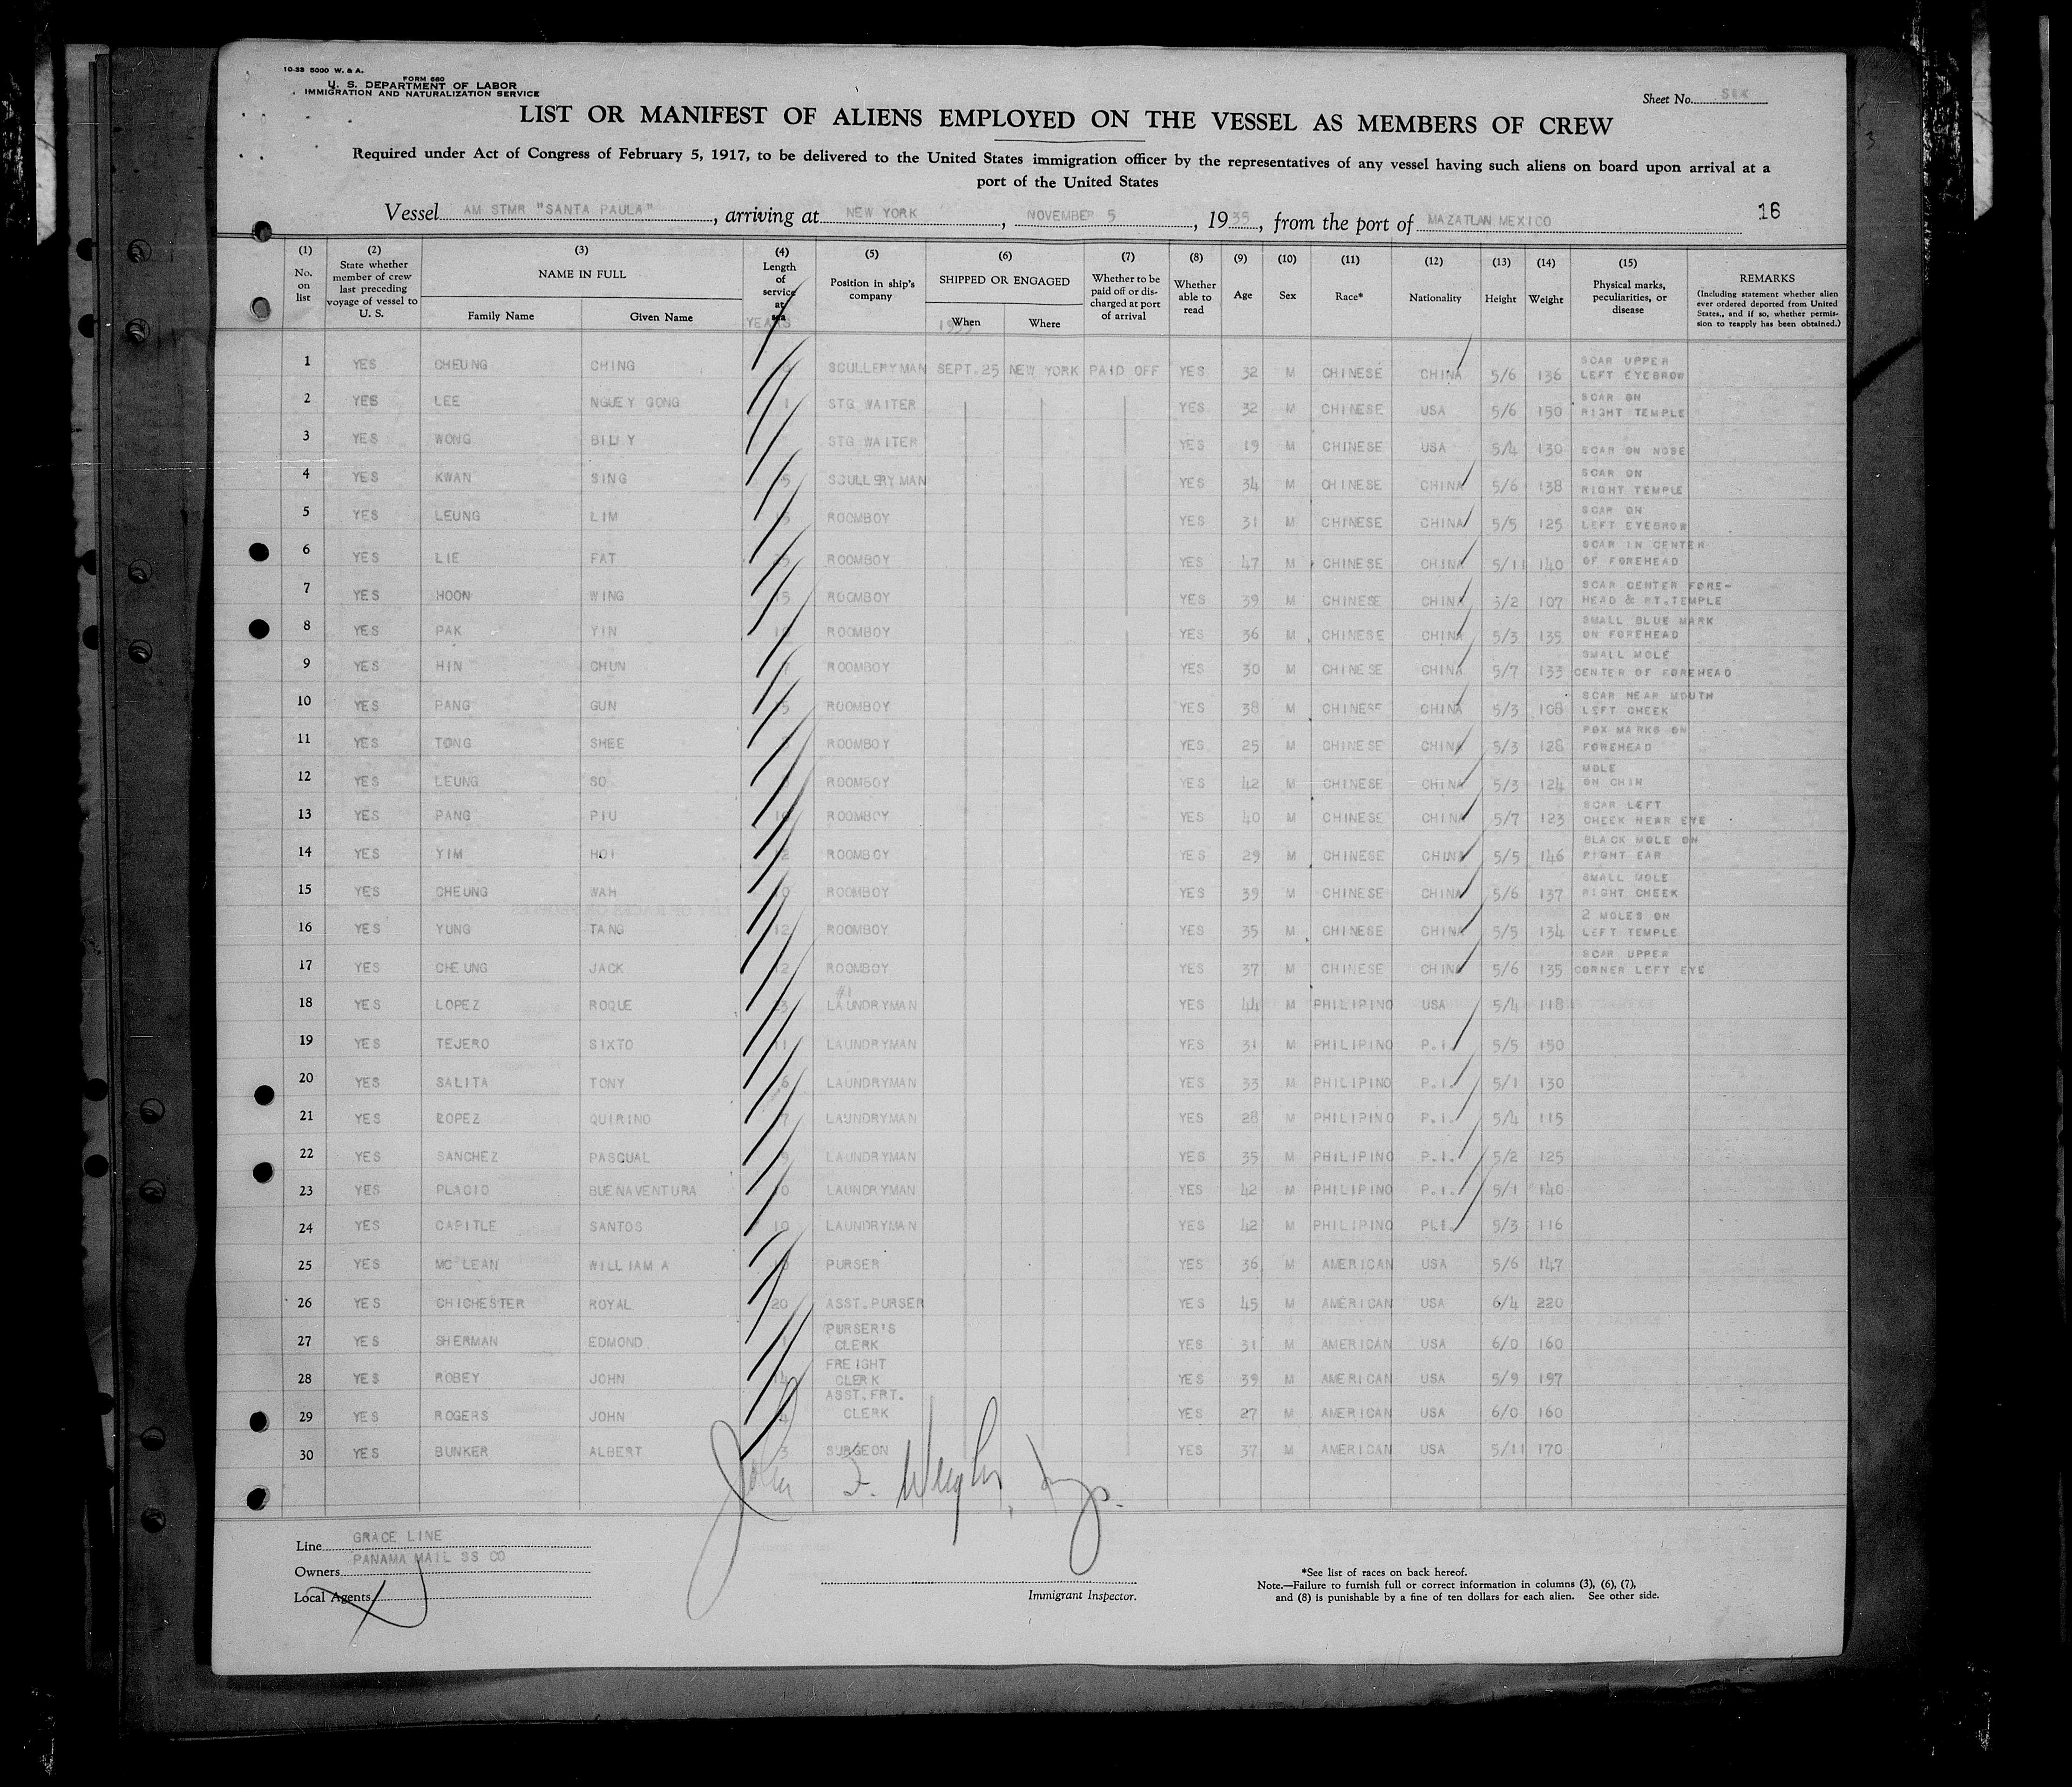 10-33 5000 W. & A.
FORM 680
U. S. DEPARTMENT OF LABOR
IMMIGRATION AND NATURALIZATION SERVICE
Sheet No. SIX
LIST OR MANIFEST OF ALIENS EMPLOYED ON THE VESSEL AS MEMBERS OF CREW
Required under Act of Congress of February 5, 1917, to be delivered to the United States immigration officer by the representatives of any vessel having such aliens on board upon arrival at a
port of the United States
Vessel AM STMR "SANTA PAULA", arriving at NEW YORK, NOVEMBER 5, 1935, from the port of MAZATLAN MEXICO
16
(1) No. on list
(2) State whether member of crew last preceding voyage of vessel to U. S.
(3) NAME IN FULL Family Name Given Name
(4) Length of service at sea YEARS
(5) Position in ship's company
(6) SHIPPED OR ENGAGED When Where
(7) Whether to be paid off or discharged at port of arrival
(8) Whether able to read
(9) Age
(10) Sex
(11) Race*
(12) Nationality
(13) Height
(14) Weight
(15) Physical marks, peculiarities, or disease
REMARKS (Including statement whether alien ever ordered deported from United States, and if so, whether permission to reapply has been obtained.)
1 YES CHEUNG CHING SCULLERYMAN SEPT.25 NEW YORK PAID OFF YES 32 M CHINESE CHINA 5/6 136 SCAR UPPER LEFT EYEBROW
2 YES LEE NGUEY GONG 1 STG WAITER YES 32 M CHINESE USA 5/6 150 SCAR ON RIGHT TEMPLE
3 YES WONG BILLY STG WAITER YES 19 M CHINESE USA 5/4 130 SCAR ON NOSE
4 YES KWAN SING SCULLERYMAN YES 34 M CHINESE CHINA 5/6 138 SCAR ON RIGHT TEMPLE
5 YES LEUNG LIM ROOMBOY YES 31 M CHINESE CHINA 5/5 125 SCAR ON LEFT EYEBROW
6 YES LIE FAT ROOMBOY YES 47 M CHINESE CHINA 5/11 140 SCAR IN CENTER OF FOREHEAD
7 YES HOON WING 15 ROOMBOY YES 39 M CHINESE CHINA 5/2 107 SCAR CENTER FORE-HEAD & RT.TEMPLE
8 YES PAK YIN ROOMBOY YES 36 M CHINESE CHINA 5/3 135 SMALL BLUE MARK ON FOREHEAD
9 YES HIN CHUN 7 ROOMBOY YES 30 M CHINESE CHINA 5/7 133 SMALL MOLE CENTER OF FOREHEAD
10 YES PANG GUN ROOMBOY YES 38 M CHINESE CHINA 5/3 108 SCAR NEAR MOUTH LEFT CHEEK
11 YES TONG SHEE ROOMBOY YES 25 M CHINESE CHINA 5/3 128 POX MARKS ON FOREHEAD
12 YES LEUNG SO ROOMBOY YES 42 M CHINESE CHINA 5/3 124 MOLE ON CHIN
13 YES PANG PIU ROOMBOY YES 40 M CHINESE CHINA 5/7 123 SCAR LEFT CHEEK NEAR EYE
14 YES YIM HOI ROOMBOY YES 29 M CHINESE CHINA 5/5 146 BLACK MOLE ON RIGHT EAR
15 YES CHEUNG WAH ROOMBOY YES 39 M CHINESE CHINA 5/6 137 SMALL MOLE RIGHT CHEEK
16 YES YUNG TANG 12 ROOMBOY YES 35 M CHINESE CHINA 5/5 134 2 MOLES ON LEFT TEMPLE
17 YES CHEUNG JACK 12 ROOMBOY YES 37 M CHINESE CHINA 5/6 135 SCAR UPPER CORNER LEFT EYE
18 YES LOPEZ ROQUE #1 LAUNDRYMAN YES 44 M PHILIPINO USA 5/4 118
19 YES TEJERO SIXTO 11 LAUNDRYMAN YES 31 M PHILIPINO P.I. 5/5 150
20 YES SALITA TONY 6 LAUNDRYMAN YES 33 M PHILIPINO P.I. 5/1 130
21 YES LOPEZ QUIRINO 7 LAUNDRYMAN YES 28 M PHILIPINO P.I. 5/4 115
22 YES SANCHEZ PASCUAL 9 LAUNDRYMAN YES 35 M PHILIPINO P.I. 5/2 125
23 YES PLACIO BUENAVENTURA LAUNDRYMAN YES 42 M PHILIPINO P.I. 5/1 140
24 YES CAPITLE SANTOS 10 LAUNDRYMAN YES 42 M PHILIPINO P.I. 5/3 116
25 YES MC LEAN WILLIAM A PURSER YES 36 M AMERICAN USA 5/6 147
26 YES CHICHESTER ROYAL 20 ASST.PURSER YES 45 M AMERICAN USA 6/4 220
27 YES SHERMAN EDMOND PURSER'S CLERK YES 31 M AMERICAN USA 6/0 160
28 YES ROBEY JOHN FREIGHT CLERK YES 39 M AMERICAN USA 5/9 197
29 YES ROGERS JOHN 4 ASST.FRT. CLERK YES 27 M AMERICAN USA 6/0 160
30 YES BUNKER ALBERT 3 SURGEON YES 37 M AMERICAN USA 5/11 170
John F.
Line GRACE LINE
Owners PANAMA MAIL SS CO
Local Agents
Immigrant Inspector.
*See list of races on back hereof.
Note.—Failure to furnish full or correct information in columns (3), (6), (7),
and (8) is punishable by a fine of ten dollars for each alien. See other side.